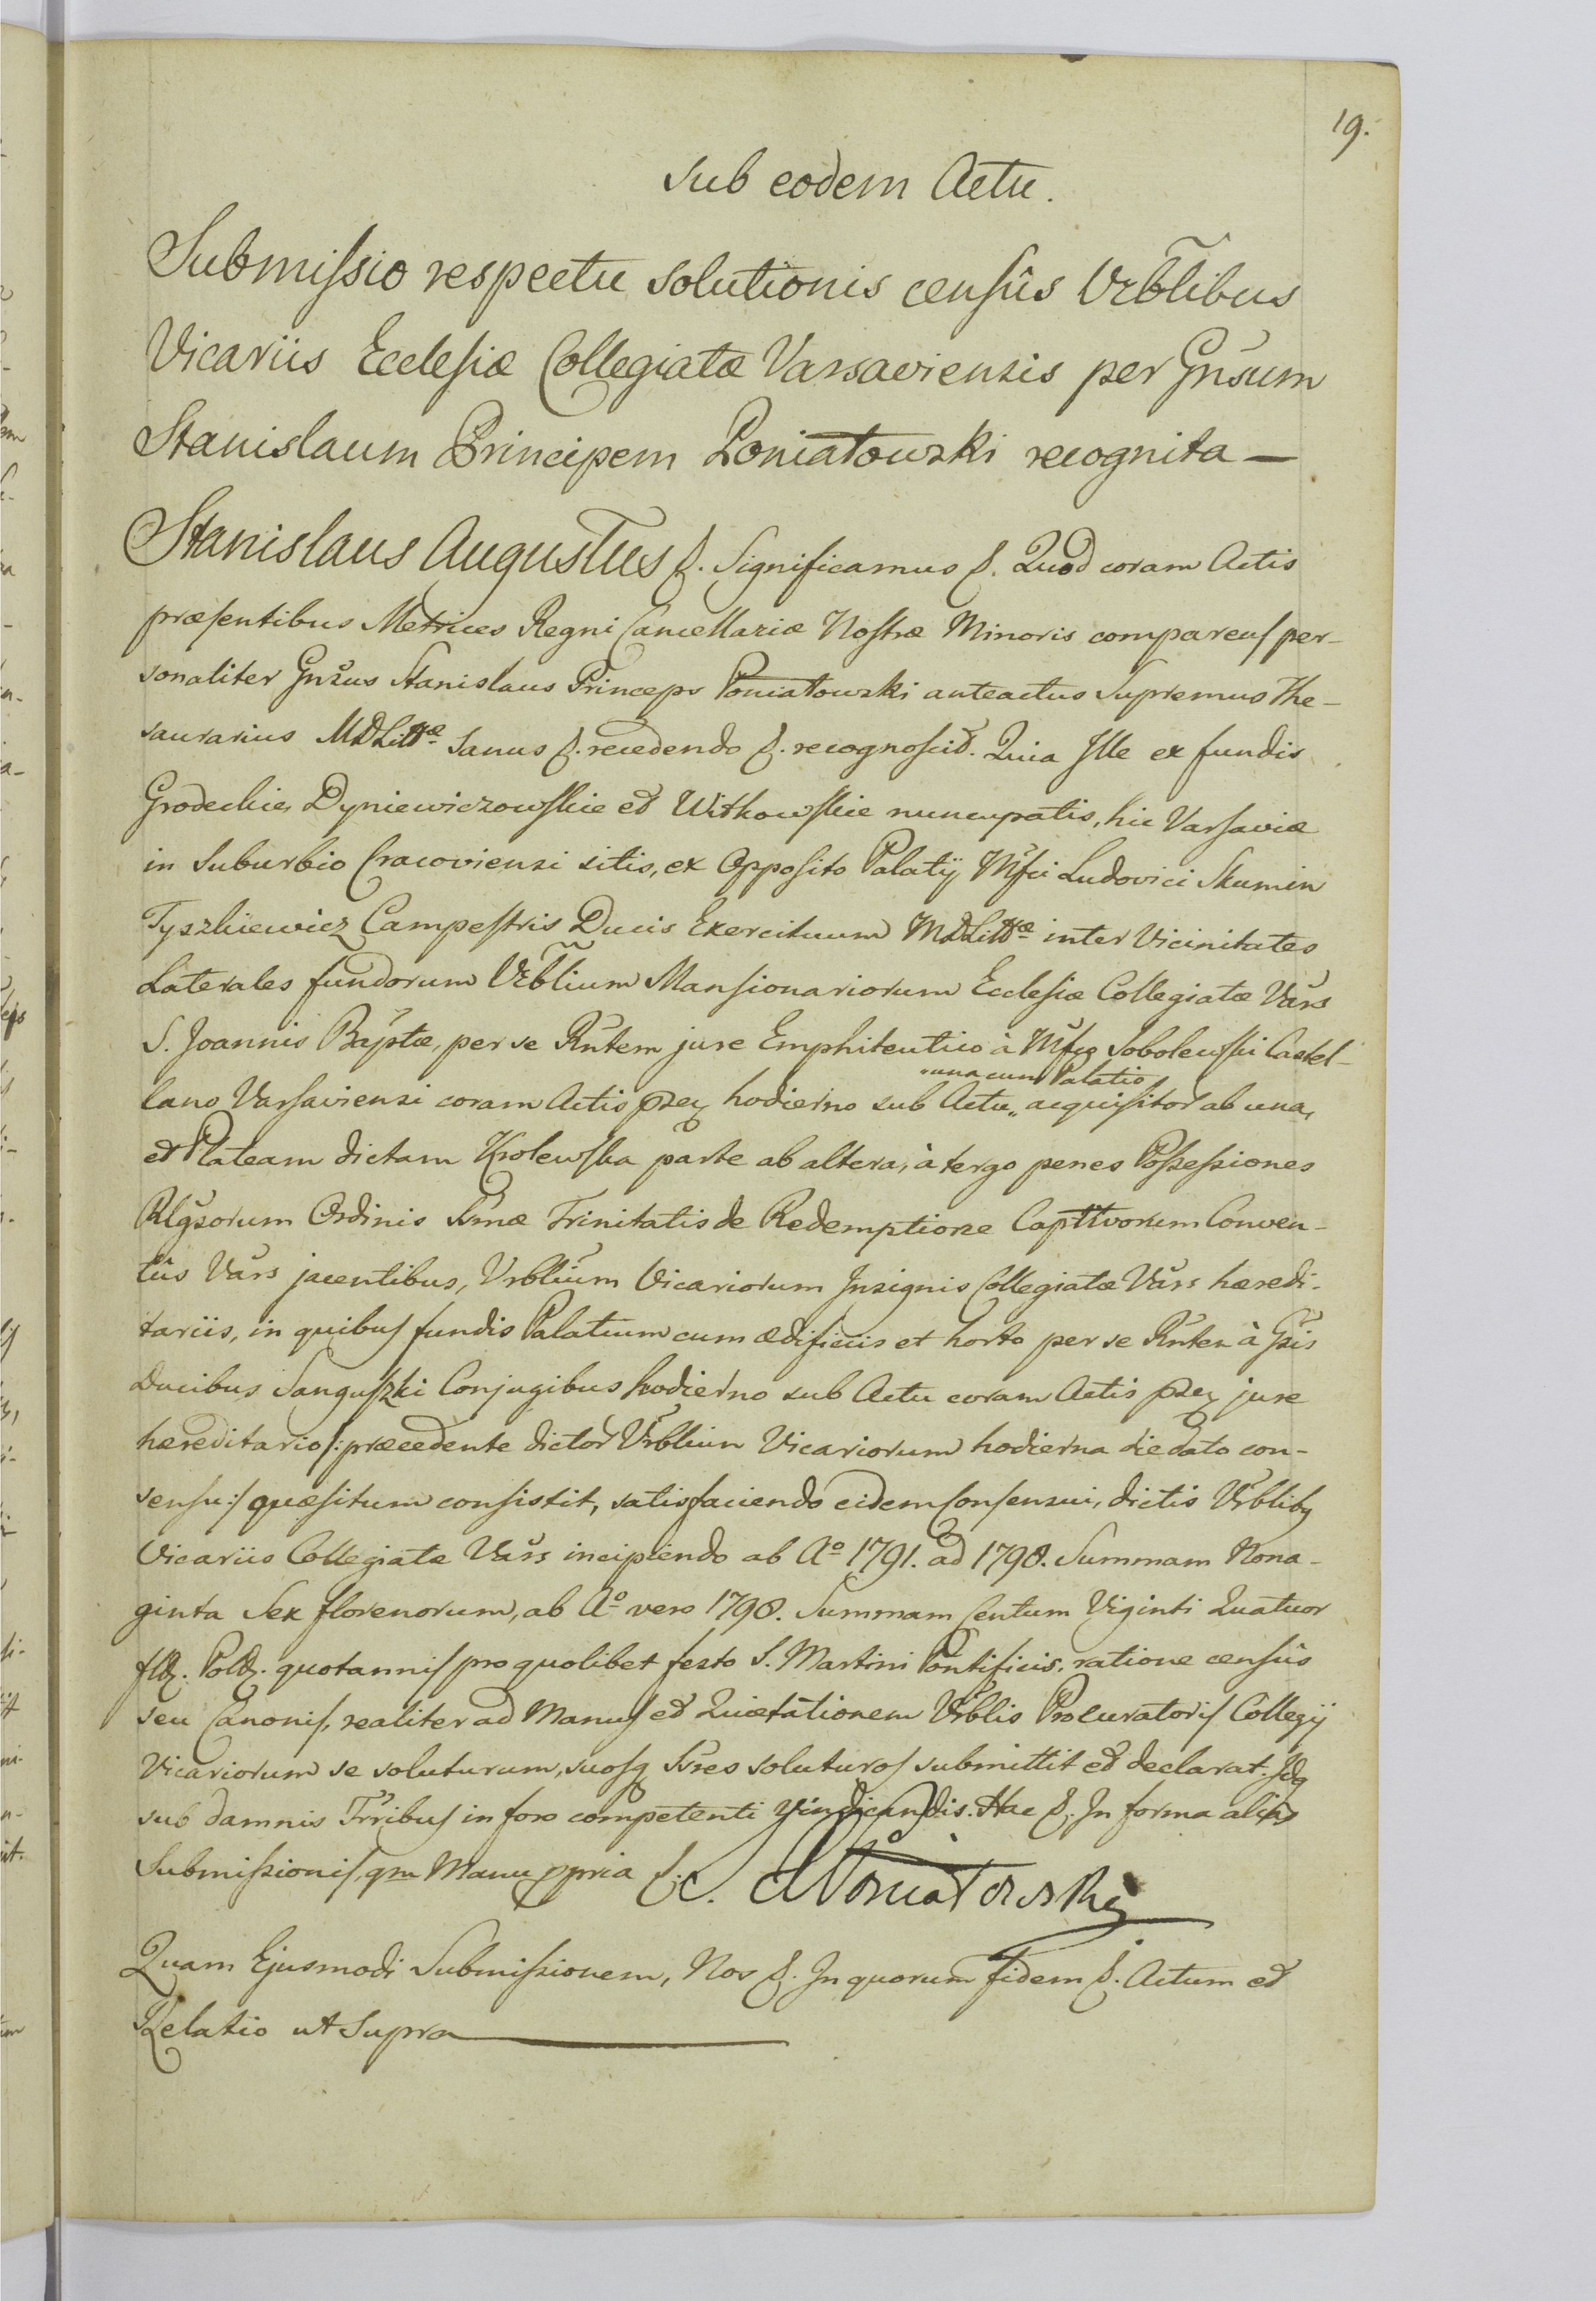 19.
sub eodem Actu.
Submissio respectu solutionis censûs Vrblibus
Vicariis Ecclesiæ Collegiatæ Varsaviensis per Gnsum
Stanislaum Principem Poniatowski recognita —
Stanislaus Augustus &. Significamus &. Quod coram Actis
præsentibus Metrices Regni Cancellariæ Nostræ Minoris comparens per-
sonaliter Gnsus Stanislaus Princeps Poniatowski anteactus Supremus The-
saurarius MDLittæ Sanus &. recedendo &. recognoscit. Quia Ille ex fundis
Grodeckie, Dyniewiczowskie et Witkowskie nuncupatis, hic Varsaviæ
in Suburbio Cracoviensi sitis, ex Opposito Palatij Mfci Ludovici Skumin
Tyszkiewicz Campestris Ducis Exercituum MDLittæ inter Vicinitates
Laterales fundorum Vrblium Mansionariorum Ecclesiæ Collegiatæ Vars
S. Joannis Baptæ, per se Rntem jure Emphiteutico à Mfco Sobolewski Castel-
„una cum Palatio
lano Varsaviensi coram Actis præs hodierno sub Actu „ acquisitor ab una,
et Plateam dictam Krolewska parte ab altera, à tergo penes Possessiones
Rlgsorum Ordinis Ssmæ Trinitatis de Redemptione Captivorum Conven-
tûs Vars jacentibus, Vrblium Vicariorum Insignis Collegiatæ Vars hæredi-
tariis, in quibus fundis Palatium cum ædificiis et horto per se Rnten à Gsis
Ducibus Sanguszki Conjugibus hodierno sub Actu coram Actis præs jure
hæreditario /: præcedente dictor Vrblium Vicariorum hodierna die dato con-
sensu :/ quæsitum consistit, satisfaciendo eidem Consensui, dictis Vrblibq
Vicariis Collegiatæ Vars incipiendo ab Aº 1791. ad 1798. Summam Nona-
ginta Sex florenorum, ab Aº vero 1798. Summam Centum Viginti Quatuor
flor. Pol. quotannis pro quolibet festo S. Martini Pontificis, ratione censûs
seu Canonis, realiter ad Manus et Quietationem Vrblis Procuratoris Collegij
Vicariorum se soluturum, suosq Ssres soluturos submittit et declarat. Idq
sub damnis Trribus in foro competenti vindicandis. Hac &. In forma alias
Submissionis, qm Manu ppria &. S. Poniatowski
Quam Ejusmodi Submissionem, Nos &. In quorum fidem &. Actum et
Relatio ut Supra